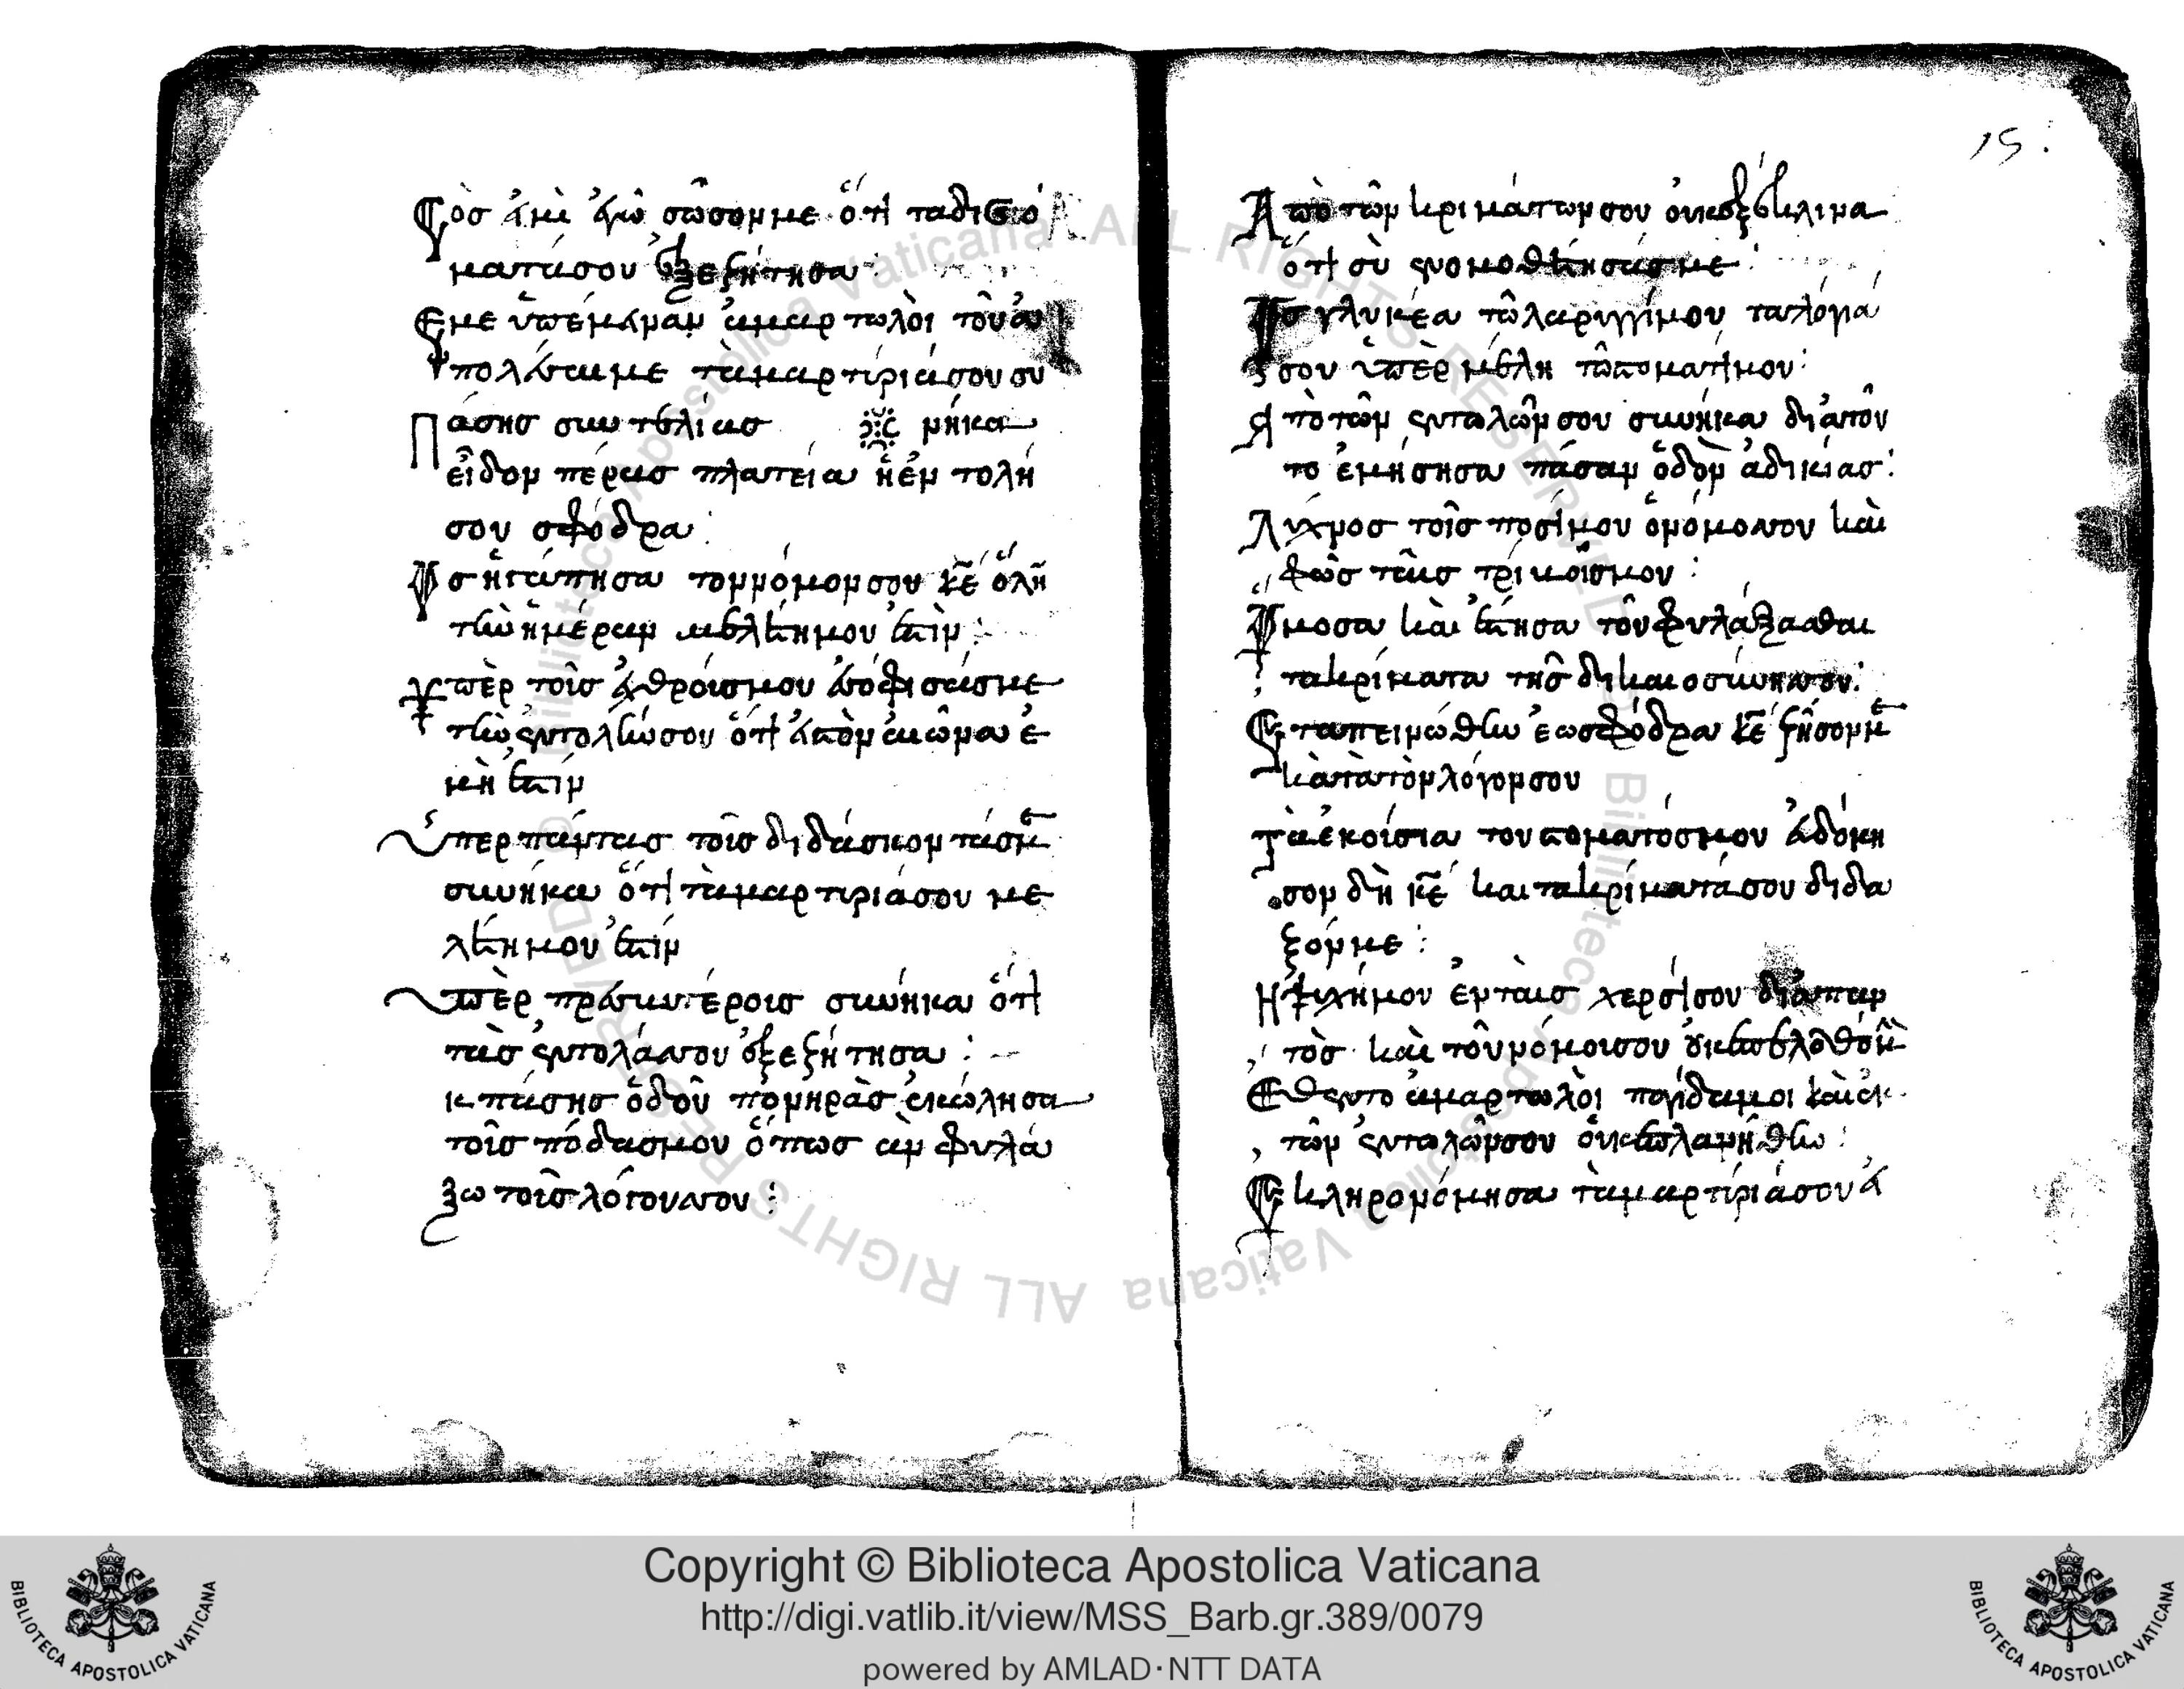 σὸσ ἐμὶ ἐγὼ σῶσον με ὅτι τα δικαιό
ματά σου ἐξεζήτησα:
Εμε ὑπέμεναν ἁμαρτωλὸι τοῦ ἀ
πολέσαι με τὰ μαρτίριά σου συ
Πάσησ συντελίασ νήκα
εἶδον πέρασ πλατεία ἡ ἐν τολή
σου σφόδρα:
Ὡσ ἠγάπησα τον νόμον σου κε ὅλην
τὴν ἡμέραν μελέτη μου ἐστὶν:
Ὑπὲρ τοῖσ ἐχθρόισ μου ἐσόφισάσ με
τὴν ἐντολήν σου ὅτι ἐις τὸν αἰῶνα ἐ
μὴ ἐστίν
Ὑπερ πάντασ τοῖσ διδάσκοντάσ με
συνήκα ὅτι τὰ μαρτιριά σου με
λέτη μου ἐστίν
Ὑπὲρ πρεσβυτέροισ συνήκα ὅτι
τὰσ ἐντολάσ σου ἐξεζήτησα:
κ πάσησ ὁδοῦ πονηρὰσ ἐκώλησα
τοῖσ πόδασ μου ὅπωσ ἀν φυλά
ξω τοῖσ λόγουσ σου:
15:
Απὸ τῶν κριμάτων σου ὀυκ ἐξέκλινα
ὅτι σὺ ἐνομοθέτησάσ με:
Ὡσ γλυκέα τῶ λαριγγί μου τα λόγιά
σου ὑπὲρ μέλη τῶ στοματί μου:
Ἀπὸ τῶν ἐντολῶν σου συνήκα διἀ τοῦ
το ἐμήσησα πάσαν ὁδὸν ἀδικίασ:
Λύχνοσ τοῖσ ποσί μου ὁ νόμοσ σου καὶ
φῶσ τὰισ τρίκοισ μου:
Ὤμοσα καὶ ἔστησα τοῦ φυλάξασθαι
τα κρίματα τῆσ δικαιοσύνησ σου:
Εταπεινώθην ἑωσ φόδρα κε ζῆσον με
κατὰ τὸν λόγον σου
Τὰ ἐκοίσια του στοματόσ μου ἐδόκη
σον δὴ κε και τα κρίματά σου διδα
ξόν με:
Η ψιχή μου ἐν τὰισ χερσί σου διἀ παν
τὸσ καὶ τοῦ νόμοι σου ὀυκ ἐπελαθόμην
Εθεντο ἁμαρτωλὸι παγίδα μοι καὶ ἐκ
τῶν ἐντολῶν σου ὀυκ ἐπλανήθην:
Εκληρονόμησα τὰ μαρτίριά σου ἐ
Copyright © Biblioteca Apostolica Vaticana
http://digi.vatlib.it/view/MSS_Barb.gr.389/0079
powered by AMLAD·NTT DATA
BIBLIOTECA APOSTOLICA VATICANA
BIBLIOTECA APOSTOLICA VATICANA